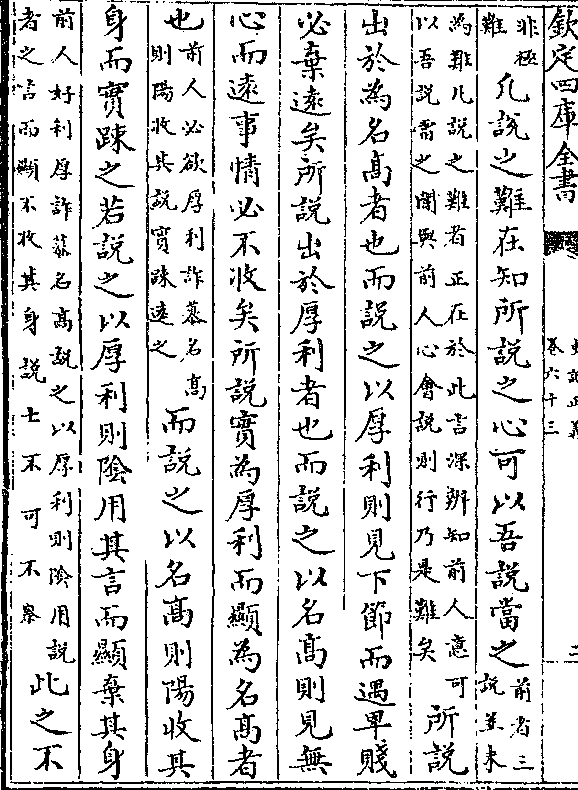 欽定四庫全書
史記正義
卷六十三
二
非極
難
凡說之難在知所說之心可以吾說當之
前者三
說並未
為難凡說之難者正在於此言深辨知前人意可
以吾說當之闇與前人心會說則行乃是難矣
所說
出於為名髙者也而說之以厚利則見下節而遇卑賤
必棄遠矣所說出於厚利者也而說之以名髙則見無
心而遠事情必不收矣所說實為厚利而顯為名髙者
也
前人必欲厚利詐慕名髙
則陽收其說實踈逺之
而說之以名髙則陽收其
身而實踈之若說之以厚利則陰用其言而顯棄其身
前人好利厚詐慕名髙說之以厚利則陰用說
者之言而顯不收其身說士不可不察
此之不